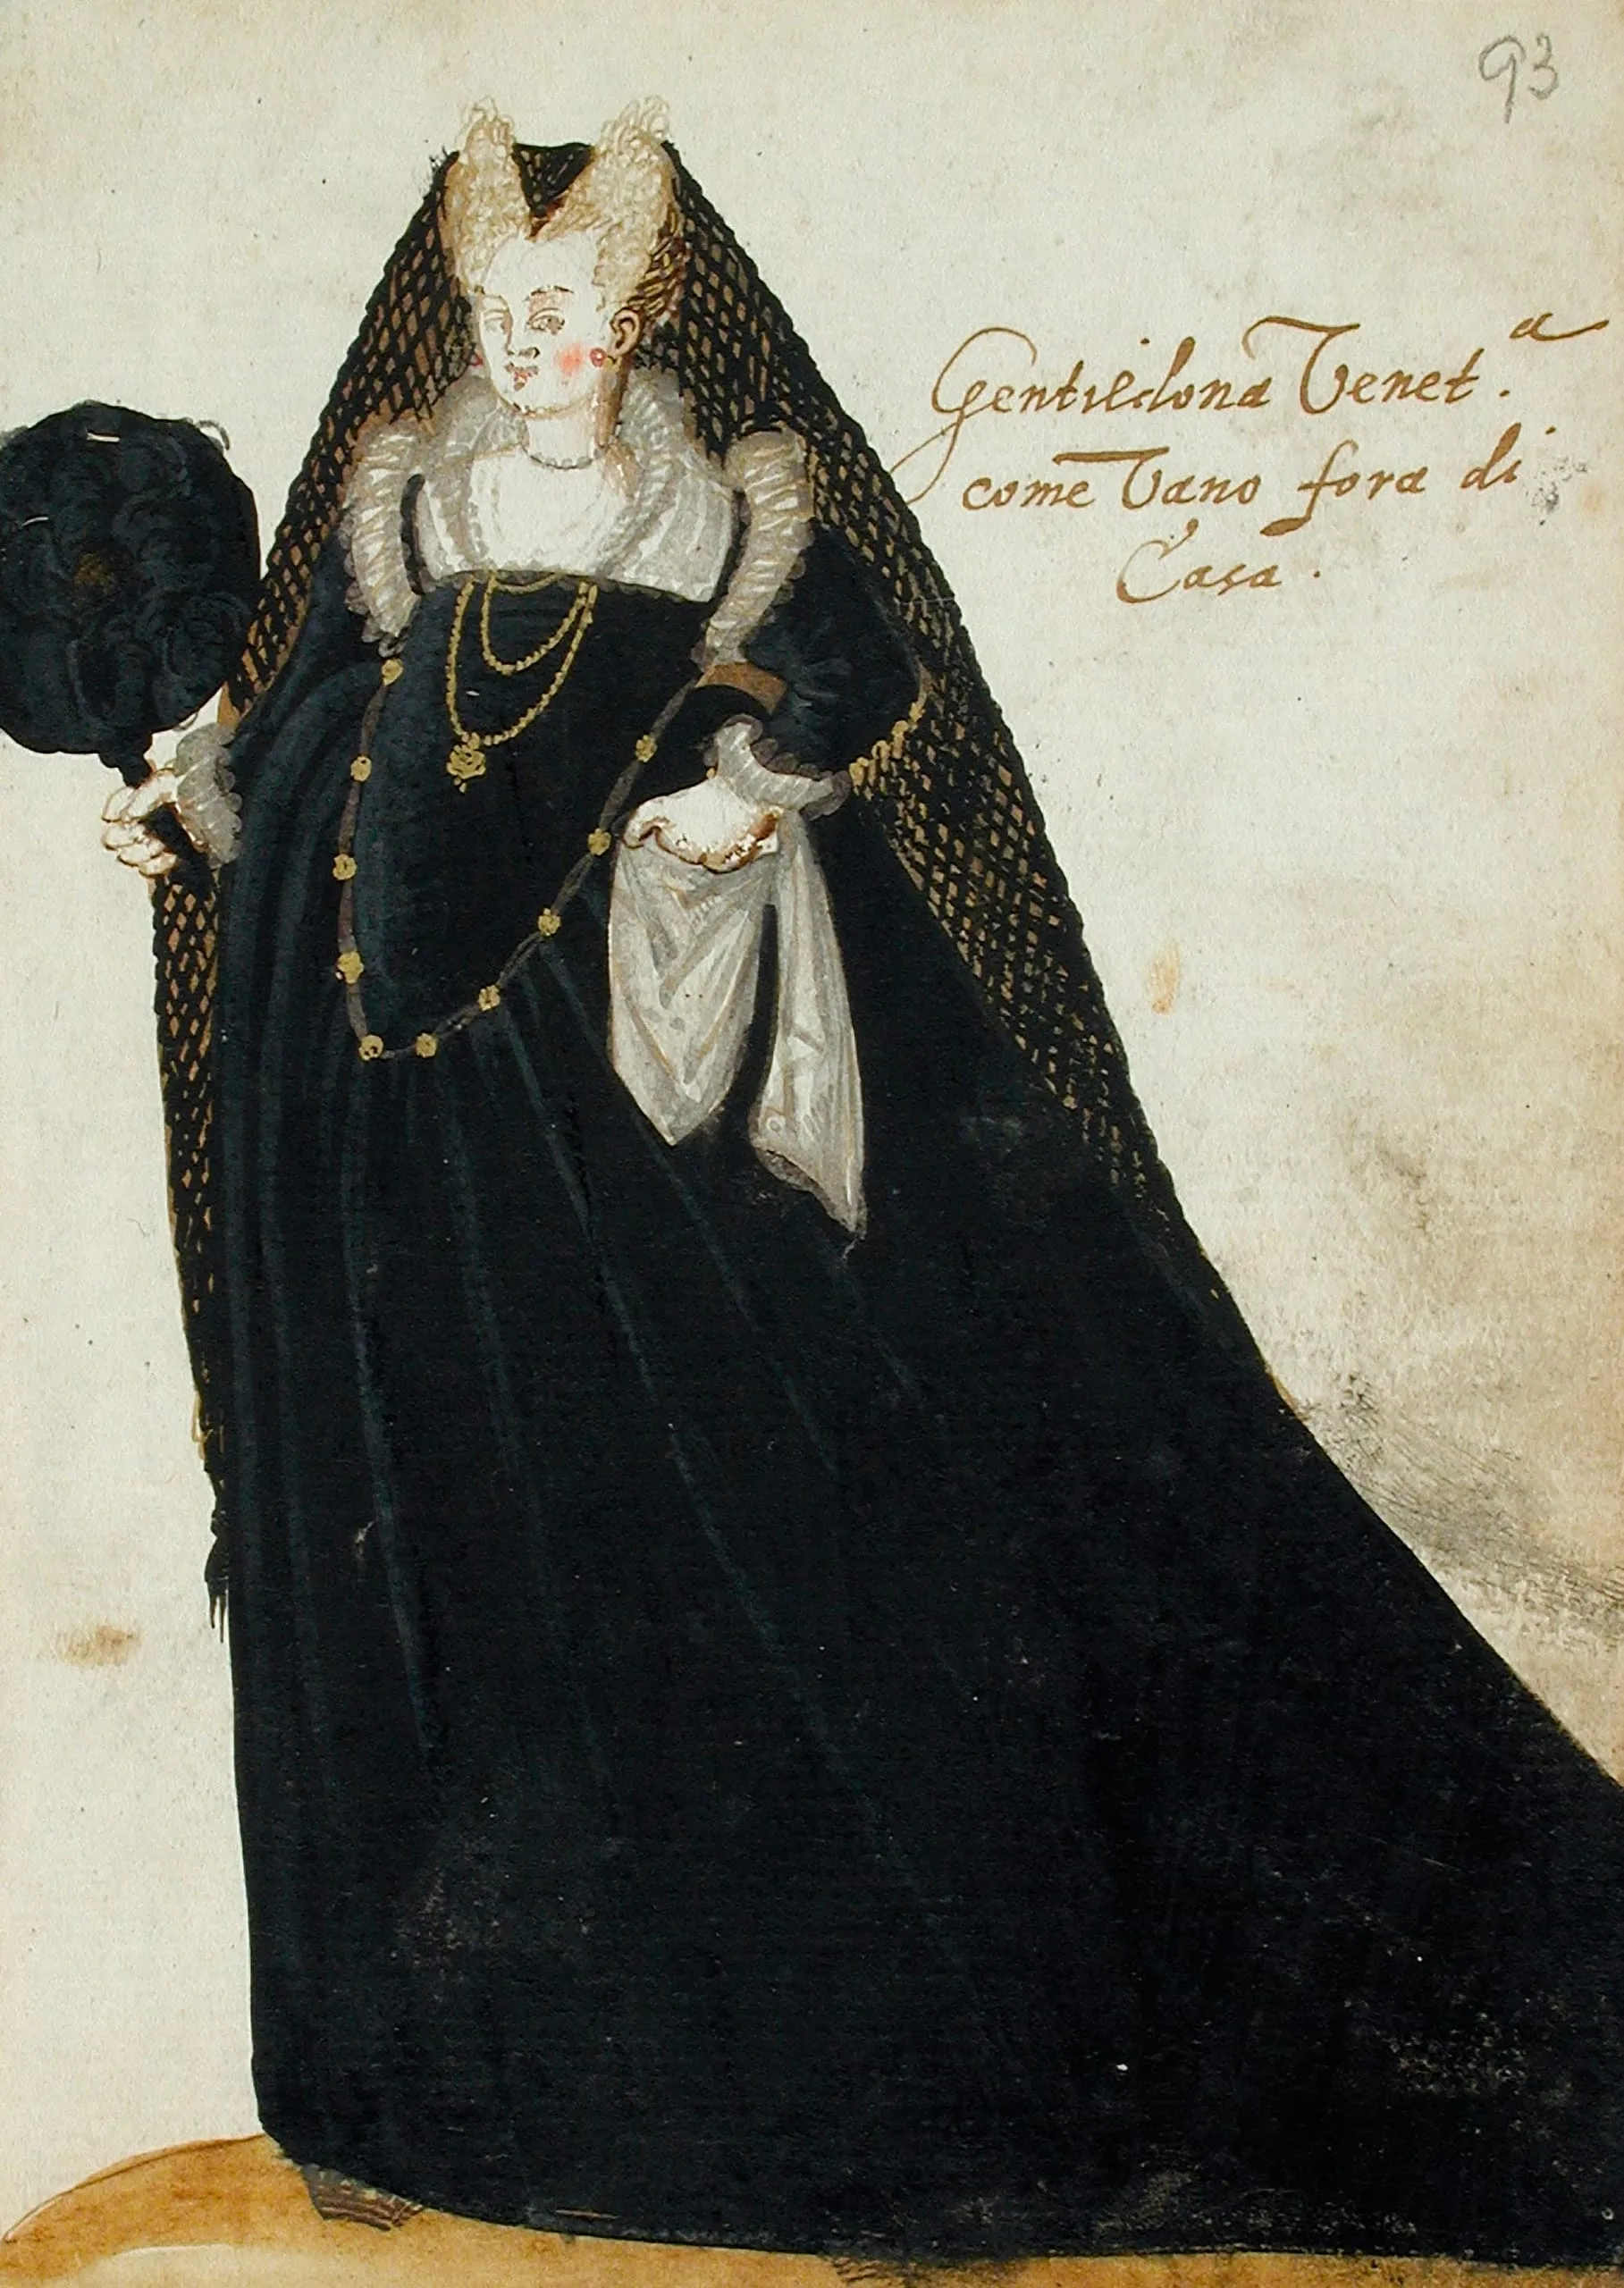 93
Gentildona Venet.ᵃ
come Vano fora di
Casa.